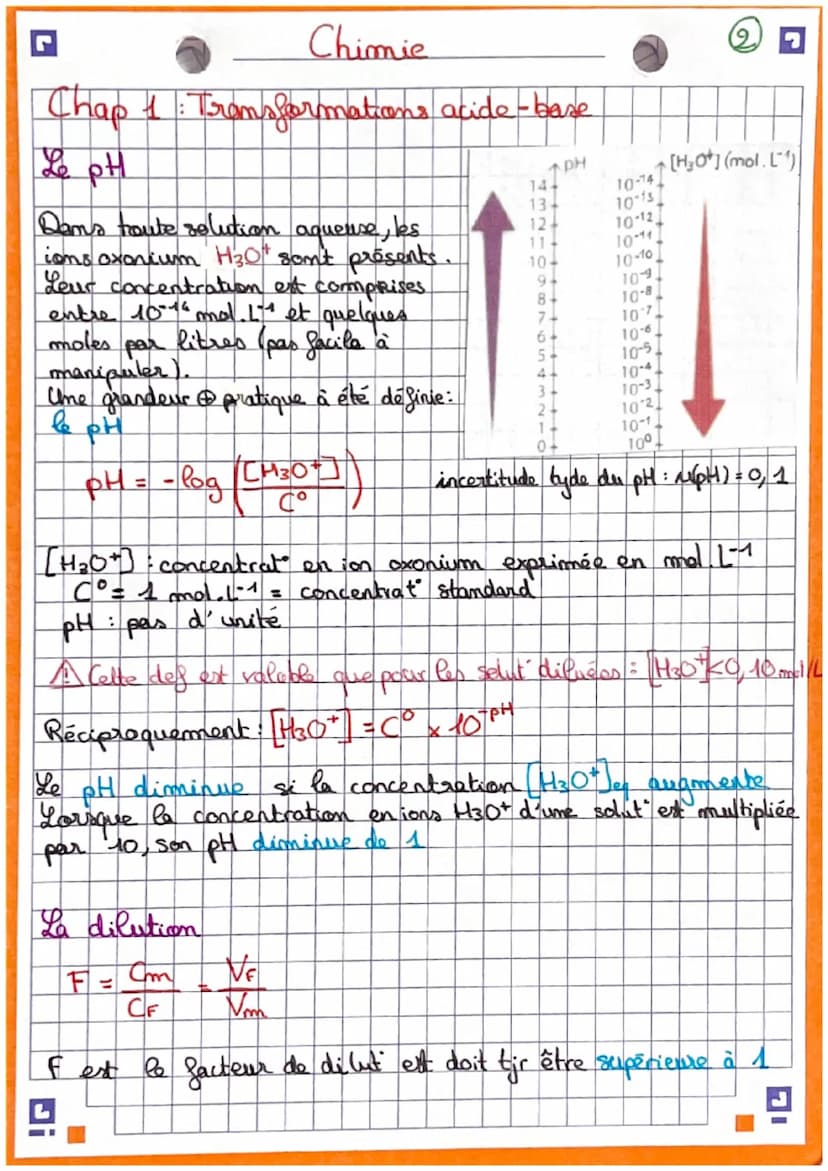 Chimie
2
Chap 1 : Transformations acide-base
Le pH
Dans toute solution aqueuse, les
ions oxonium H3O+ sont présents.
Leur concentration est comprises
entre 10^-14 mol.L^-1 et quelques
moles par litres (pas facile à
manipuler).
Une grandeur ⊕ pratique à été définie:
le pH
pH
14
13
12
11
10
9
8
7
6
5
4
3
2
1
0
[H3O+] (mol.L^-1)
10^-14
10^-13
10^-12
10^-11
10^-10
10^-9
10^-8
10^-7
10^-6
10^-5
10^-4
10^-3
10^-2
10^-1
10^0
pH = -log ([H3O+] / C°)
incertitude type du pH : u(pH) = 0,1
[H3O+] : concentrat° en ion oxonium exprimée en mol.L^-1
C° = 1 mol.L^-1 = concentrat° standard
pH : pas d'unité
⚠ Cette def est valable que pour les solut° diluées : [H3O+]<0,10 mol/L
Réciproquement : [H3O+] = C° x 10^-pH
Le pH diminue si la concentration [H3O+]eq augmente
Lorsque la concentration en ions H3O+ d'une solut° est multipliée
par 10, son pH diminue de 1
La dilution
F = Cm / CF = VF / Vm
F est le facteur de dilut° est doit tjr être supérieure à 1